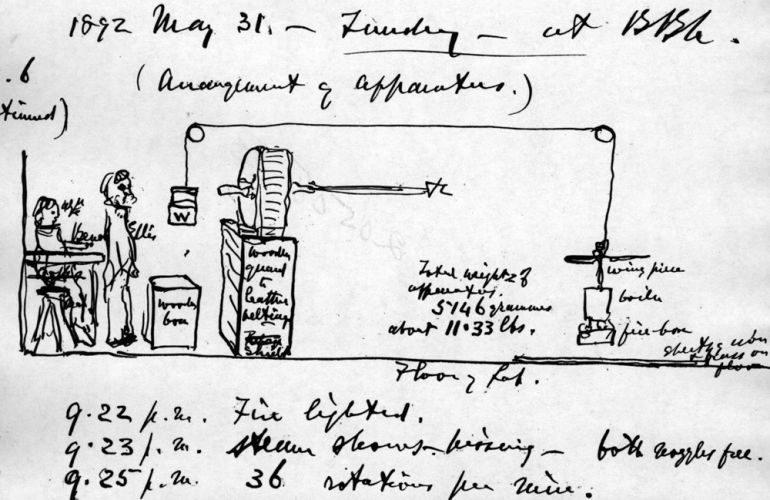 1892 May 31. — Tuesday — at BBh.
.6
(Arrangement of apparatus.)
tinued)
W
Ellis
wooden
box
wooden
guard
to
leather
belting
Shield
Total weight of
apparatus.
5146 grammes
about 11.33 lbs.
wing piece
boiler
fire-box
on
floor
Floor of Lab.
9.22 p.m. Fire lighted.
9.23 p.m. steam shows - hissing — both nozzles free.
9.25 p.m. 36 rotations per min.